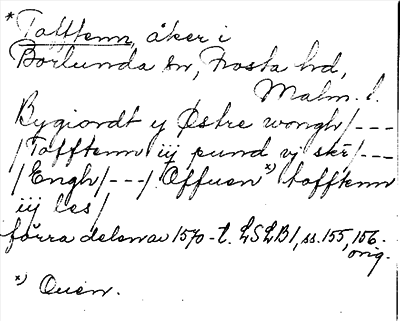 * Tofftenn, åker i
Borlunda sn, Frosta hd,
Malm. l.
Bygiordt y Østre wongh/---
/Tofftenn iij pund vj skr/---
/Engh/---/ Offuen *) tofftenn
iij les/
förra delen av 1570-t. LSLB1, ss. 155, 156.
orig.
*) Ouen.